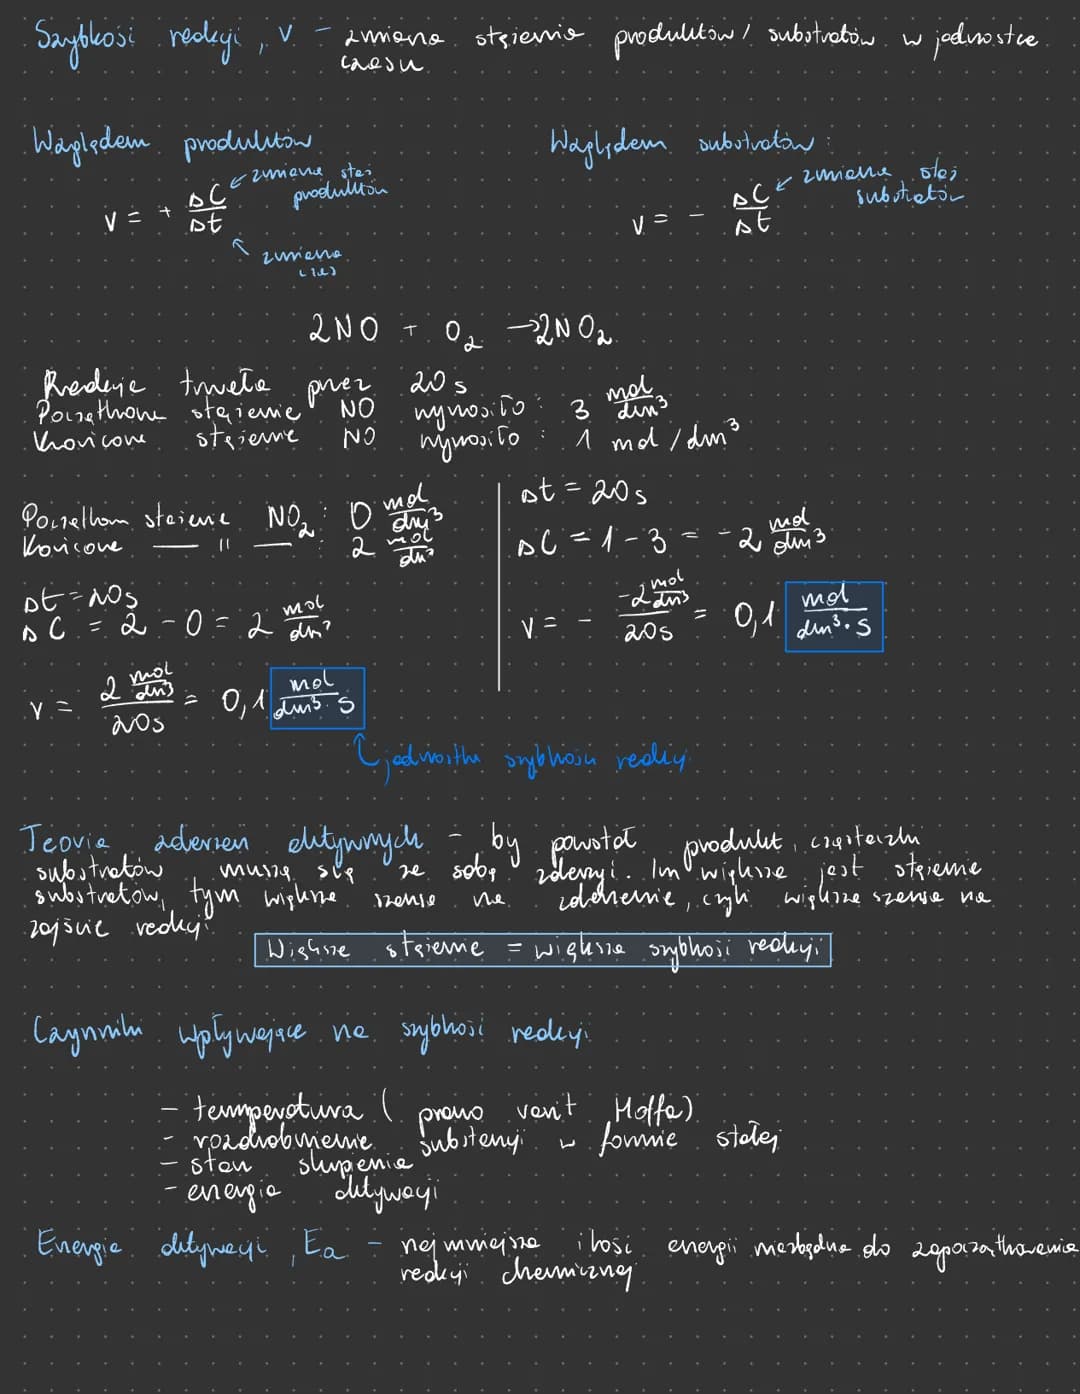 Szybkość reakcji, v – zmiana stężenia produktów / substratów w jednostce
czasu
Względem produktów
v = + ΔC/Δt
zmiana stęż
produktów
zmiana
czasu
Względem substratów:
v = – ΔC/Δt
zmiana stęż.
substratów
2NO + O₂ → 2NO₂
Reakcja trwała przez 20 s
Początkowe stężenie NO wynosiło: 3 mol/dm³
Końcowe stężenie NO wynosiło: 1 mol/dm³
Początkowe stężenie NO₂: 0 mol/dm³
Końcowe — " —: 2 mol/dm³
Δt = 20s
ΔC = 2 - 0 = 2 mol/dm³
v = 2 mol/dm³ / 20s = 0,1 mol/dm³·s
Δt = 20s
ΔC = 1 - 3 = -2 mol/dm³
v = - -2 mol/dm³ / 20s = 0,1 mol/dm³·s
jednostka szybkości reakcji
Teoria zderzeń aktywnych – by powstał produkt, cząsteczki
substratów muszą się ze sobą zderzyć. Im większe jest stężenie
substratów, tym większa szansa na zderzenie, czyli większa szansa na
zajście reakcji.
Większe stężenie = większa szybkość reakcji
Czynniki wpływające na szybkość reakcji
– temperatura (prawo van't Hoffa)
– rozdrobnienie substancji w formie stałej
– stan skupienia
– energia aktywacji
Energia aktywacji, Ea – najmniejsza ilość energii niezbędna do zapoczątkowania
reakcji chemicznej